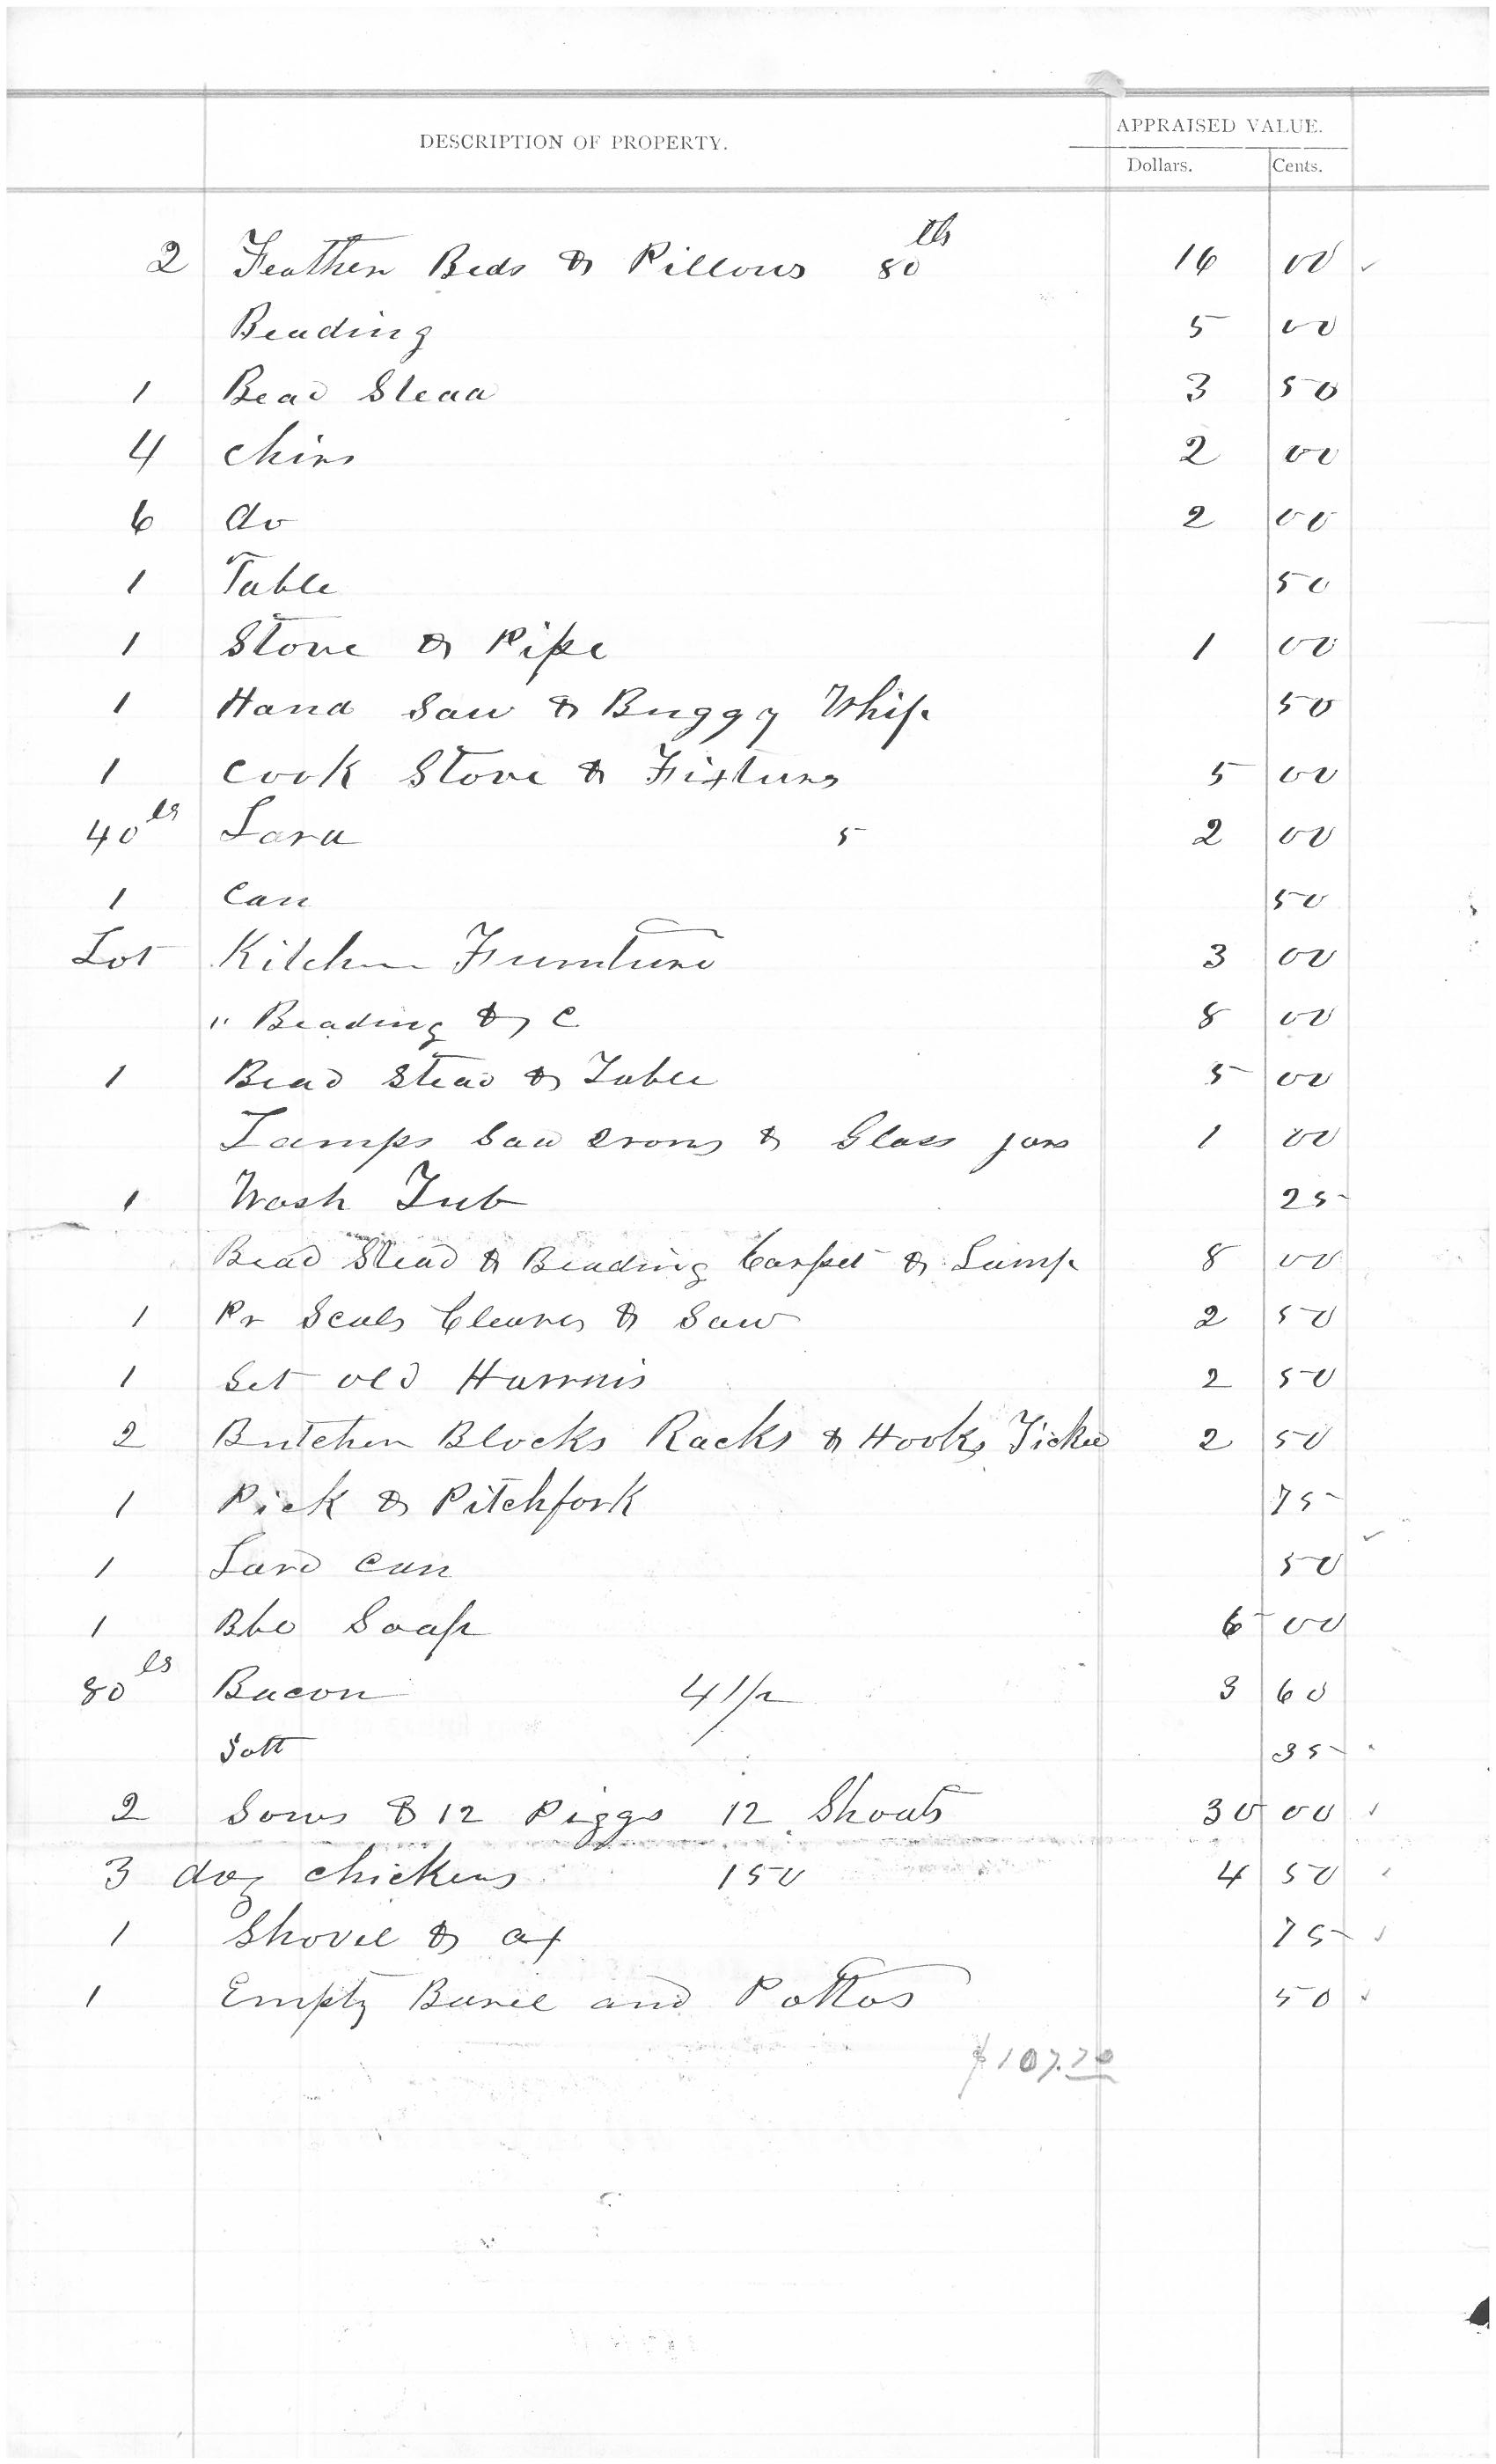 DESCRIPTION OF PROPERTY. APPRAISED VALUE.
Dollars. Cents.
2 Feather Beds & Pillows 80 lb 16 00 ✓
Beading 5 00
1 Bead Stead 3 50
4 Chirs 2 00
6 do 2 00
1 Table 50
1 Stove & Pipe 1 00
1 Hand Saw & Buggy Whip 50
1 Cook Stove & Fixturs 5 00
40 lbs Lard 5 2 00
1 Can 50
Lot Kitchen Furniture 3 00
" Beading & C 8 00
1 Bead Stead & Table 5 00
Lamps Sad Irons & Glass jars 1 00
1 Wash Tub 25
Bead Stead & Beading Carpet & Lamp 8 00
1 Pr Scals Cleaver & Saw 2 50
1 Set old Harnis 2 50
2 Butcher Blocks Racks & Hooks 2 50
1 Pick & Pitchfork 75
1 Lard Can 50 ✓
1 Bbl Soap 00
80 lbs Bacon 4 1/2 3 60
Salt 35
2 Sows & 12 Piggs 12 Shoats 30 00 ✓
3 doz Chickens 150 4 50 ✓
1 Shovel & ax 75 ✓
1 Empty Barrel and Pottos 50 ✓
$107.70